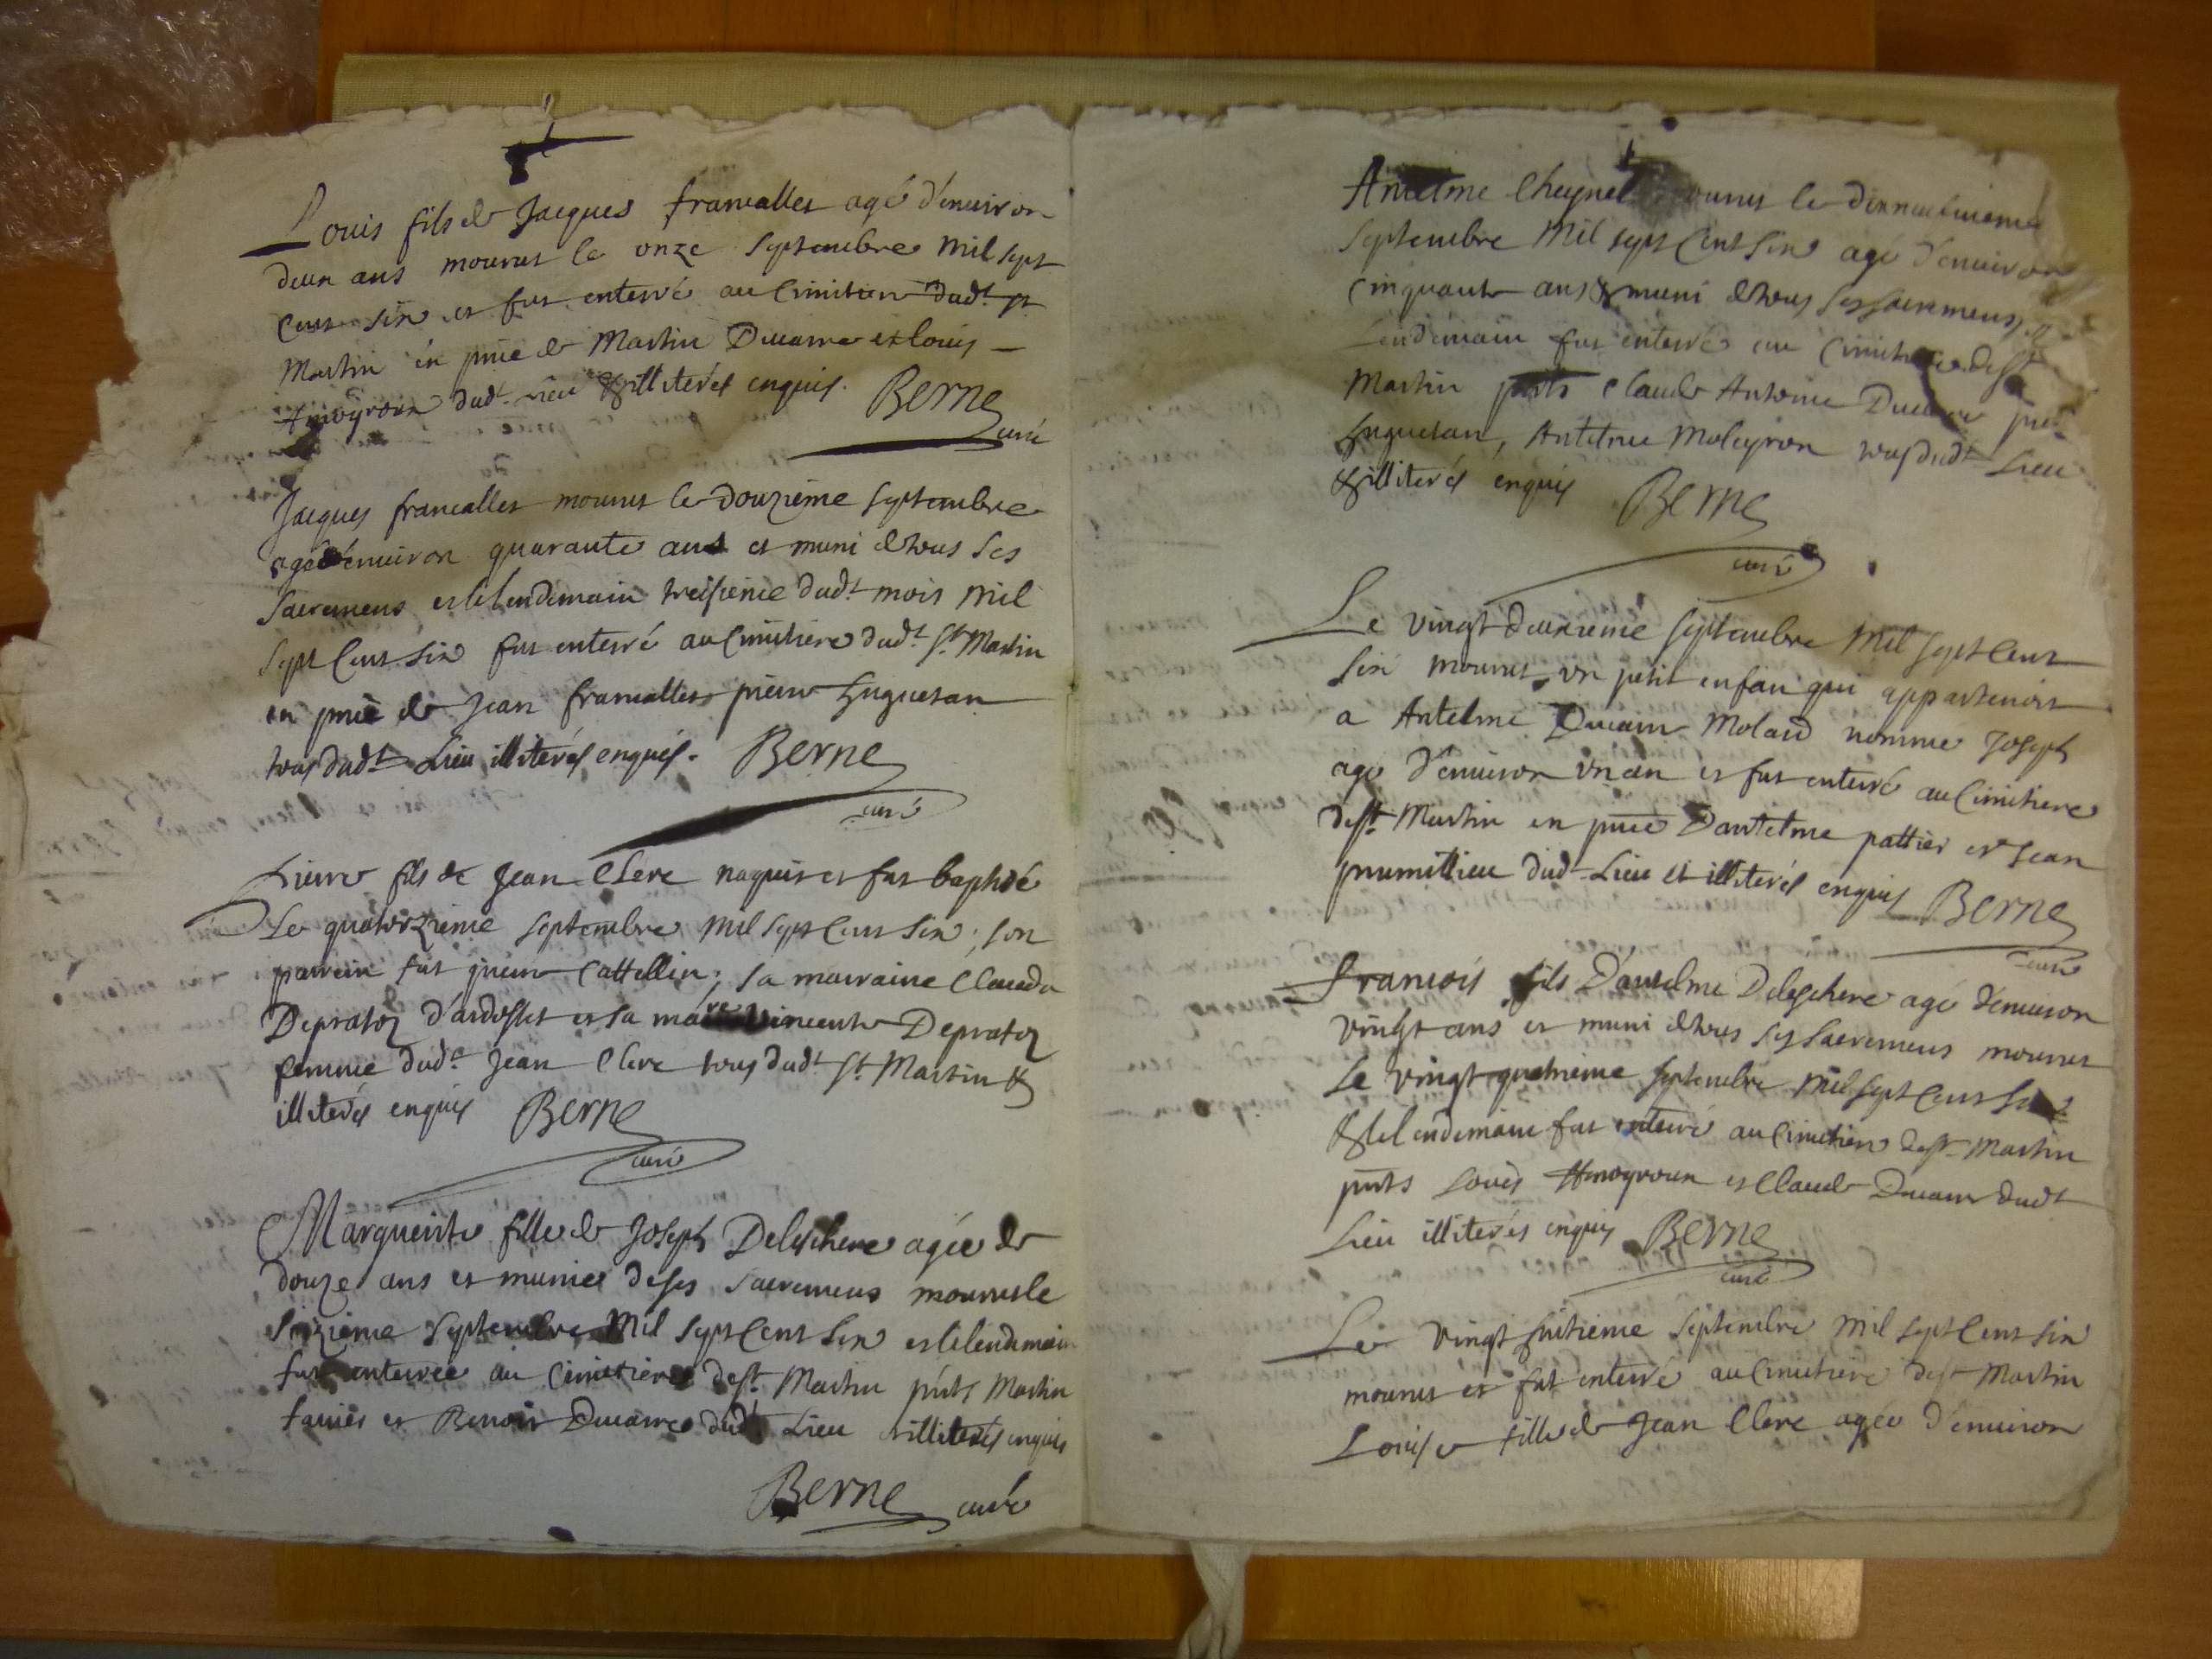 Louis fils de Jacques francallet agé d'enuiron
deux ans mourut le onze septembre mil sept
cent six et fut enterré au Cimitiere dudt st
Martin en pnce de Martin Ducarre et louis
dudt. lieu & illiterés enquis. Berne
curé
Jacques francallet mourut le douzième septembre
agé d'enuiron quarante ans et muni de tous ses
sacremens et le lendemain treisieme dudt mois mil
sept cent six fut enterré au Cimitiere dudt. st. Martin
en pnce de Jean francallet pierre huguetan
tous dudt Lieu illiterés enquis. Berne
curé
pierre fils de Jean Clere naquit et fut baptisé
Le quatorzieme septembre mil sept cent six; son
parrein fut pierre Cattellin; sa marraine Clauda
Depratoz d'ardosset et sa mère vincente Depratoz
femme dudt. Jean Clere tous dudt st. Martin &
illiterés enquis Berne
curé
Marguerite fille de Joseph Delischere agée de
douze ans et munie de ses sacremens mourut le
seizieme septembre mil sept cent six et le lendemain
fut enterrée au Cimitiere de st. Martin pnts Martin
et Benoit Ducarre dudt Lieu & illiterés enquis
Berne curé
Antelme Cheynel mourut le dixneufuieme
septembre mil sept cent six agé d'enuiron
cinquante ans & muni de tous ses sacremens, &
lendemain fut enterré au Cimitiere de st
Martin pnts Claude Antoine Ducarre pre
huguetan, Antelme Moleyron tous dudt Lieu
& illiterés enquis Berne
curé
Le vingt deuxieme septembre mil sept cent
six mourut un petit enfan qui appartenoit
a Antelme Ducarre Molard nomme Joseph
agé d'enuiron un an et fut enterré au Cimitiere
de st. Martin en pnce d'antelme pattier et Jean
prumillieu dudt Lieu et illiterés enquis Berne
curé
francois fils d'antelme Delischere agé d'enuiron
vingt ans et muni de tous ses sacremens mourut
le vingt quatrieme septembre mil sept cent six
& le lendemain fut enterré au Cimitiere de st Martin
pnts Louis et Claude Ducarre dudt
Lieu illiterés enquis Berne
curé
Le vingt huitieme septembre mil sept cent six
mourut et fut enterré au Cimitiere de st Martin
Louise fille de Jean Clere agée d'enuiron